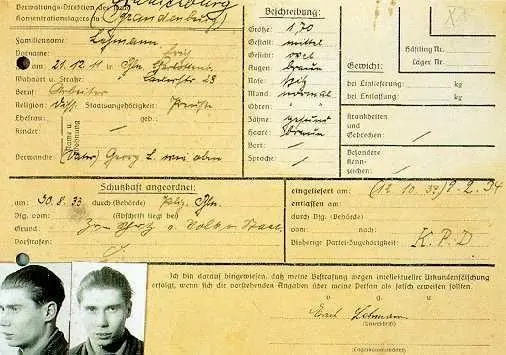 Verwaltungs-Direktion des Staatl.
Konzentrationslagers
(Brandenburg)
Familienname
Lehmann
Vorname:
am 21.12.11 in Bln.
Wohnort u. Straße:
Beruf Arbeiter
Religion Diss. Staatsangehörigkeit
Ehefrau: geb.:
Kinder /
Name u. Wohnung
Verwandte (Vater) Georg L. wie oben
Beschreibung:
Größe: 1,70
Gestalt: mittel
Gesicht: oval
Augen braun
Nase: spitz
Mund normal
Ohren "
Zähne: gesund
Haare: braun
Bart: /
Sprache /
Häftling Nr.
Lager Nr.
Gewicht:
bei Einlieferung: kg
bei Entlassung kg
Krankheiten
und
Gebrechen: /
Besondere
Kenn-
zeichen: /
Schutzhaft angeordnet:
am: 30.8.33 durch: (Behörde) Bln.
Vfg. vom: (Abschrift liegt bei)
Grund Zum Schutz v. Volk u. Staat
Vorstrafen:
eingeliefert am: (12 10 33) 9.2.34
entlassen am
durch Vfg: (Behörde)
vom: Nr.
Bisherige Partei-Zugehörigkeit: K.P.D
Ich bin darauf hingewiesen, daß meine Bestrafung wegen intellektueller Urkundenfälschung
erfolgt, wenn sich die vorstehenden Angaben über meine Person als falsch erweisen sollten.
v. g. u.
Lehmann
(Unterschrift)
(Lagerkommandant)